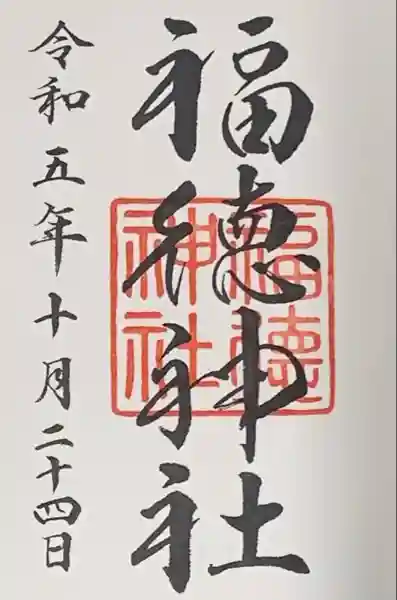 福徳神社
福徳神社
令和五年十月二十四日